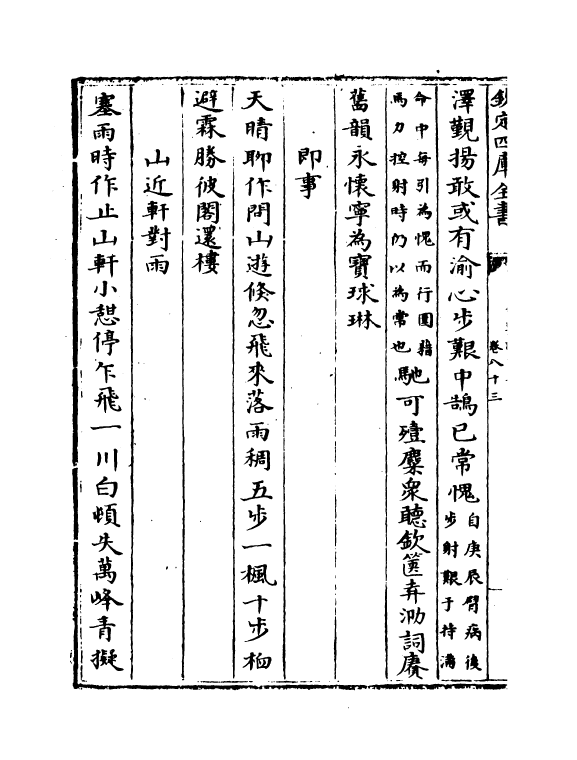 欽定四庫全書
卷八十三
澤覲揚敢或有渝心步艱中鵠已常愧自庚辰臂病後步射艱于持滿
命中每引為愧而行圍藉馬力控射時仍以為常也馳可殪麋衆聽欽篋弆泐詞賡
舊韻永懷寧為寶球琳
即事
天晴聊作問山遊倐忽飛來落雨稠五步一楓十步栢
避霖勝彼閣還樓
山近軒對雨
塞雨時作止山軒小憇停乍飛一川白頓失萬峰青擬